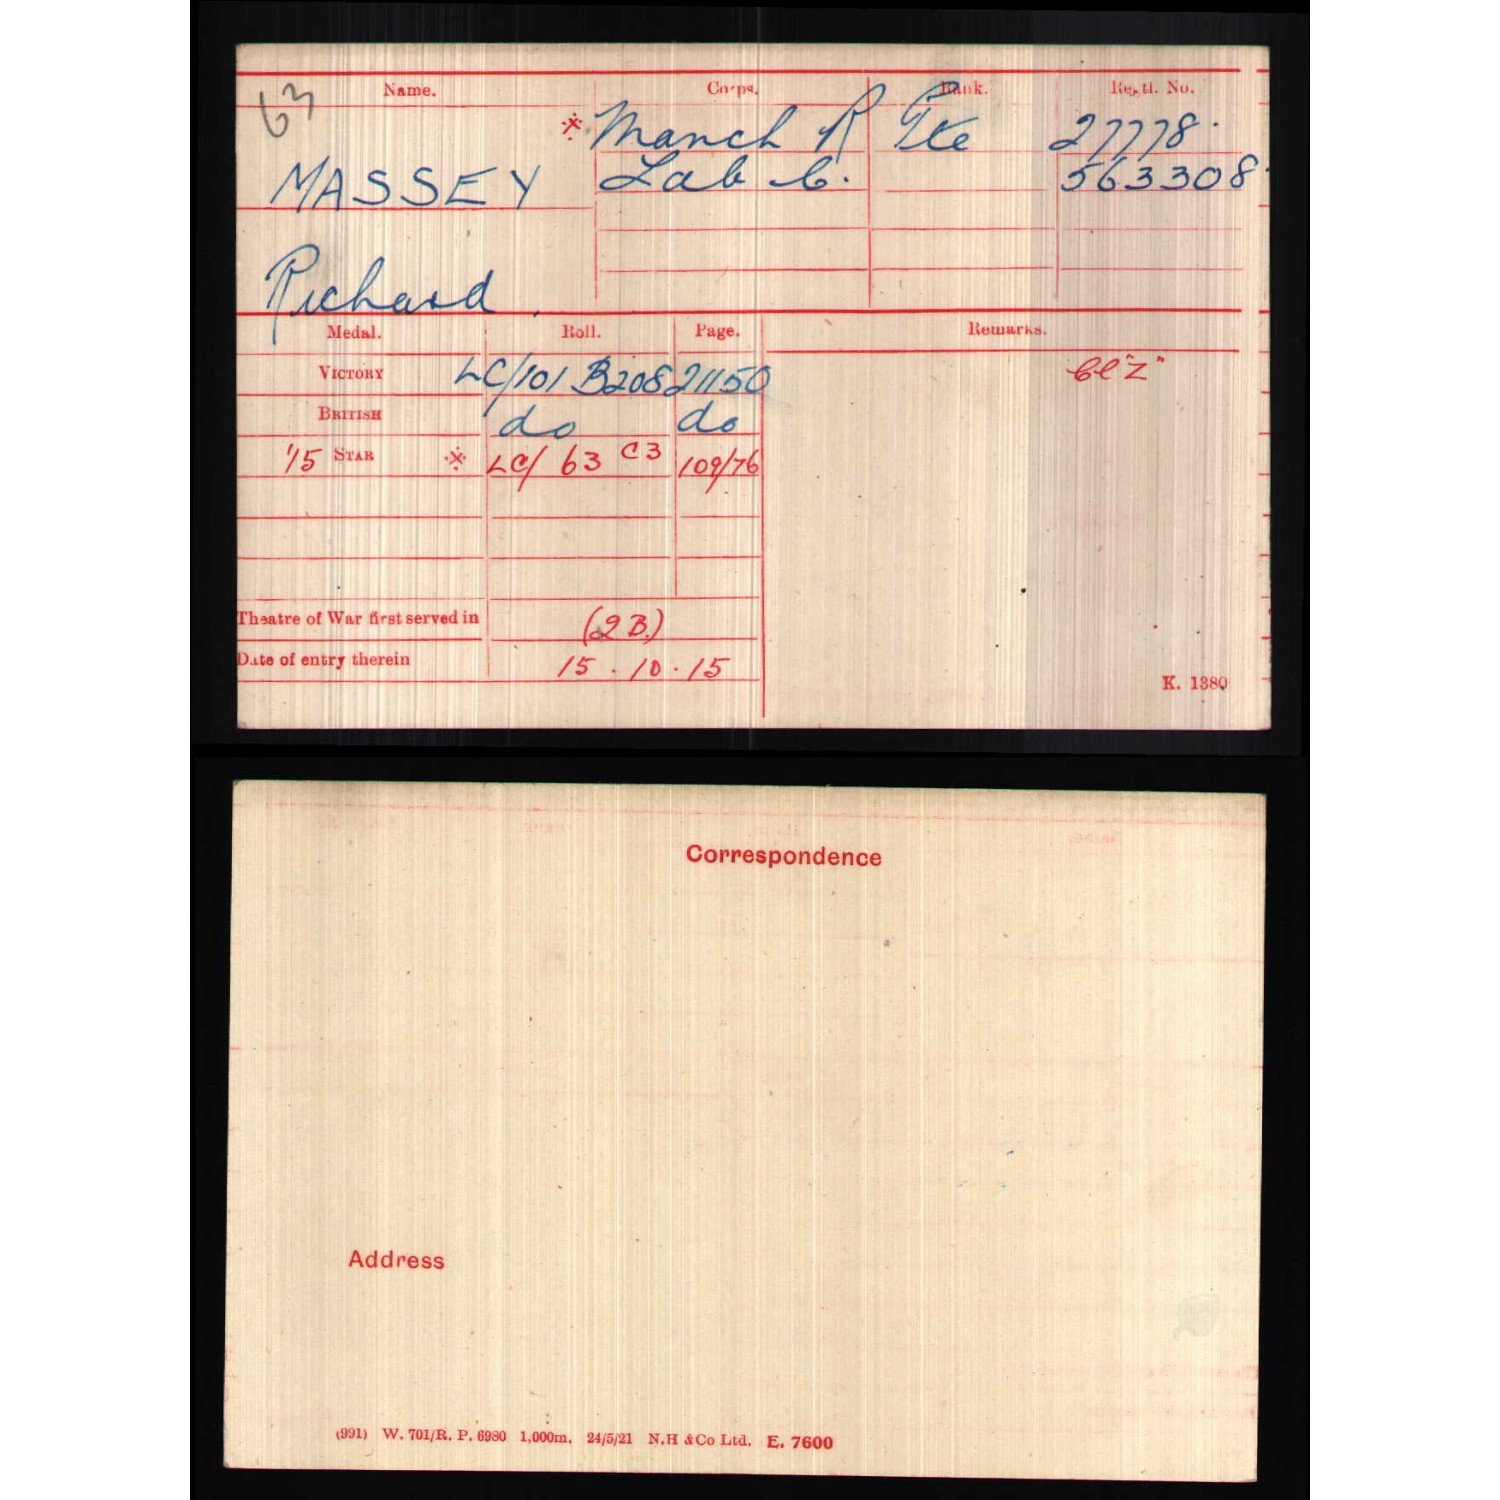 63
Name. Corps. Rank. Regtl. No.
※ Manch R Pte 27778.
MASSEY Lab C. 563308.
Richard.
Medal. Roll. Page. Remarks.
VICTORY LC/101 B208 21150 Cl "Z"
BRITISH do do
'15 STAR ※ LC/ 63 C3 109/76
Theatre of War first served in (2 B.)
Date of entry therein 15.10.15
K. 1380
Correspondence
Address
(991) W. 701/R. P. 6980 1,000m. 24/5/21 N.H & Co Ltd. E. 7600